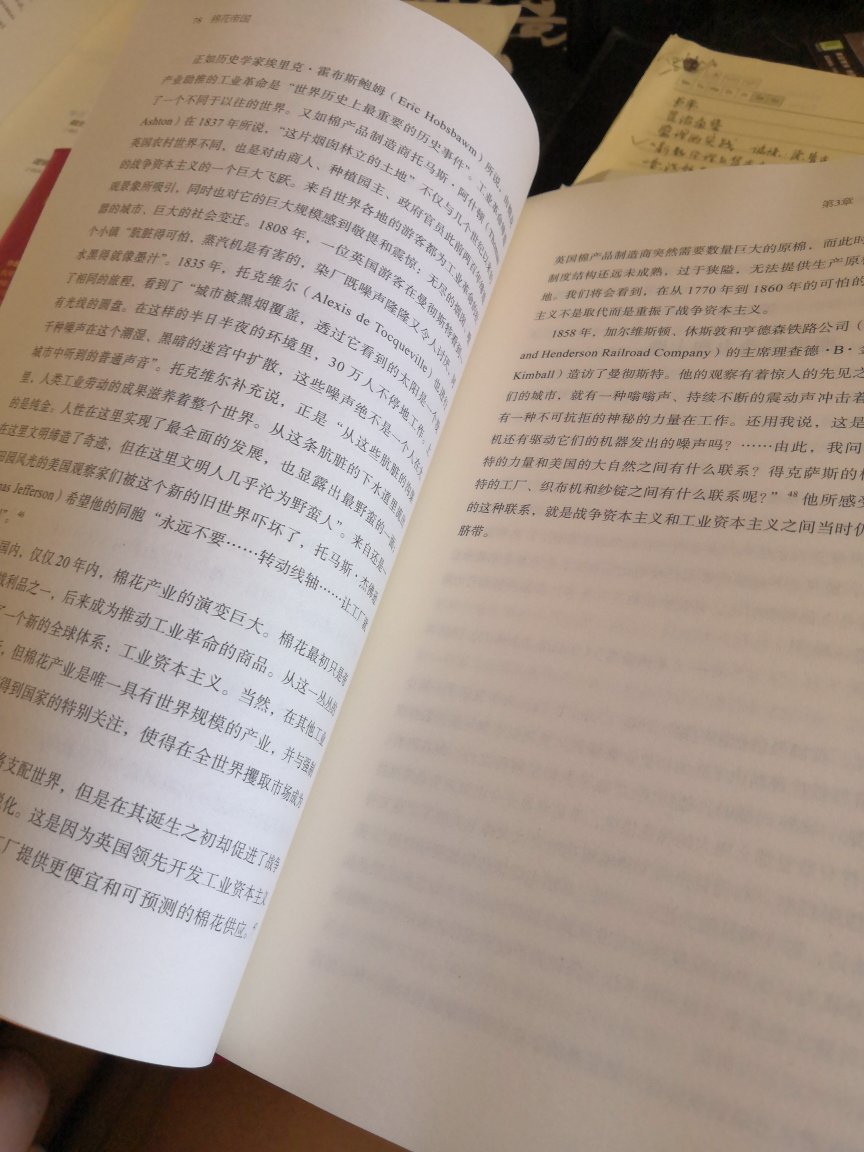 78 棉花帝国
正如历史学家埃里克·霍布斯鲍姆（Eric Hobsbawm）所说，由棉
产业勃推的工业革命是“世界历史上最重要的历史事件”。工业革命
了一个不同于以往的世界。又如棉产品制造商托马斯·阿什顿（Thomas
Ashton）在1837年所说，“这片烟囱林立的土地”不仅与几个世纪以
英国农村世界不同，也是对由商人、种植园主、政府官员此前两百年
的战争资本主义的一个巨大飞跃。来自世界各地的游客都为工业革命的
观景象所吸引，同时也对它的巨大规模感到敬畏和震惊：无尽的烟囱、
嚣的城市、巨大的社会变迁。1808年，一位英国游客在曼彻斯特看到，
个小镇“肮脏得可怕，蒸汽机是有害的，染厂既噪声隆隆又令人讨厌，
水黑得就像墨汁”。1835年，托克维尔（Alexis de Tocqueville）也进行
了相同的旅程、看到了“城市被黑烟覆盖，透过它看到的太阳是一个
有光线的圆盘。在这样的半日半夜的环境里，30万人不停地工作。上
千种噪声在这个潮湿、黑暗的迷宫中扩散，这些噪声绝不是一个人在
城市中听到的普通声音”。托克维尔补充说，正是“从这些肮脏的
里，人类工业劳动的成果滋养着整个世界。从这条肮脏的下水道里
的是纯金。人性在这里实现了最全面的发展，也显露出最野蛮的一面；
在这里文明缔造了奇迹，但在这里文明人几乎沦为野蛮人”。来自还是
田园风光的美国观察家们被这个新的旧世界吓坏了，托马斯·杰佛逊
mas Jefferson）希望他的同胞“永远不要……转动线轴……让工厂
”。46
国内，仅仅20年内，棉花产业的演变巨大。棉花最初只是帝
战利品之一，后来成为推动工业革命的商品。从这一丛丛的
了一个新的全球体系：工业资本主义。当然，在其他工业
，但棉花产业是唯一具有世界规模的产业，并与强制
得到国家的特别关注，使得在全世界攫取市场成为
将支配世界，但是在其诞生之初却促进了战争
锐化。这是因为英国领先开发工业资本主义
工厂提供更便宜和可预测的棉花供应。47
第3章
英国棉产品制造商突然需要数量巨大的原棉，而此时
制度结构还远未成熟，过于狭隘，无法提供生产原
地。我们将会看到，在从1770年到1860年的可怕的
主义不是取代而是重振了战争资本主义。
1858年，加尔维斯顿、休斯敦和亨德森铁路公司（
and Henderson Railroad Company）的主席理查德·B·
Kimball）造访了曼彻斯特。他的观察有着惊人的先见之
们的城市，就有一种嗡嗡声、持续不断的震动声冲击着
有一种不可抗拒的神秘的力量在工作。还用我说，这是
机还有驱动它们的机器发出的噪声吗？……由此，我问
特的力量和美国的大自然之间有什么联系？得克萨斯的
特的工厂、织布机和纱锭之间有什么联系呢？”48他所感
的这种联系，就是战争资本主义和工业资本主义之间当时
脐带。